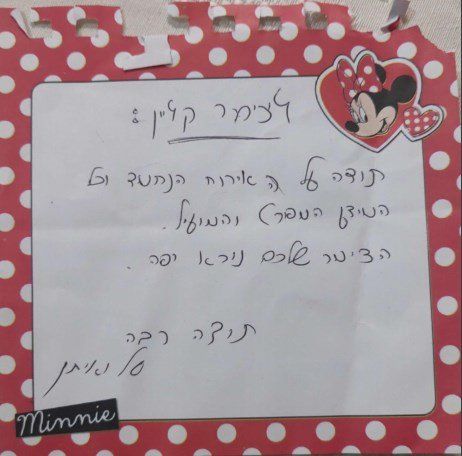 לצימר קליין :
תודה על האירוח הנחמד וכל
המידע המפרט והמועיל.
הצימר שלכם נורא יפה .
תודה רבה
טל ואיתן
Minnie